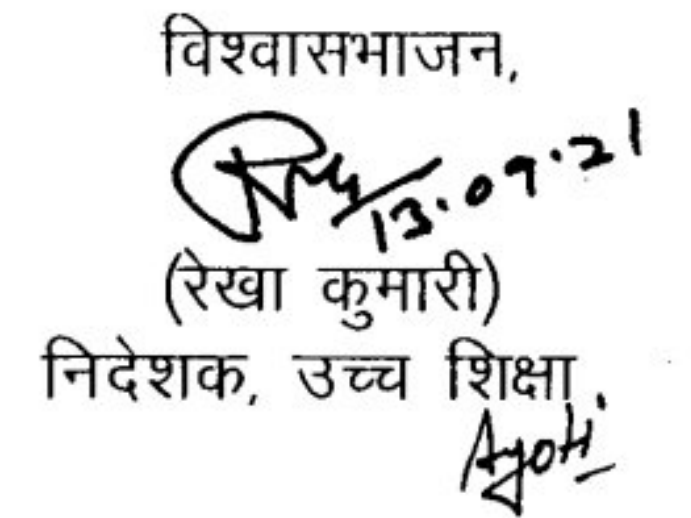 विश्वासभाजन,
13.09.21
(रेखा कुमारी)
निदेशक, उच्च शिक्षा.
Jyoti